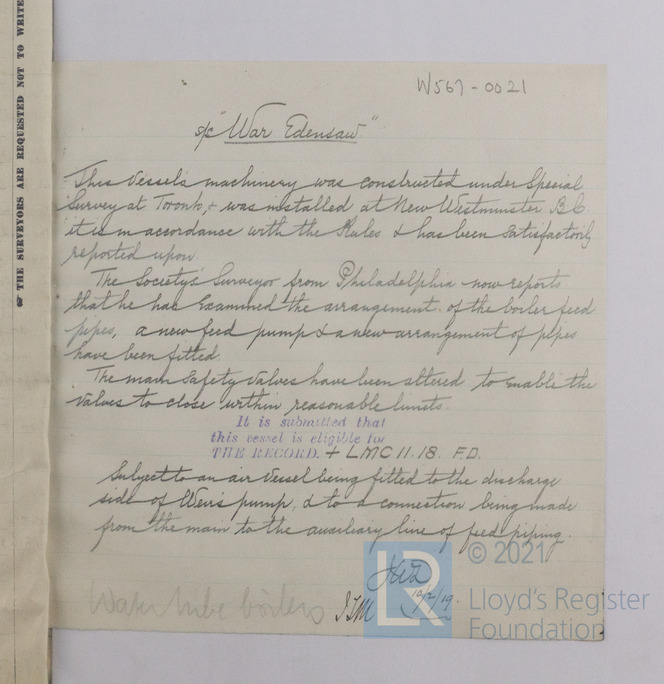 ☞ THE SURVEYORS ARE REQUESTED NOT TO WRITE
W567-0021
S/S "War Edensaw"
This vessel's machinery was constructed under Special
Survey at Toronto, & was installed at New Westminster B.C.
it is in accordance with the Rules & has been satisfactorily
reported upon.
The Society's Surveyor from Philadelphia now reports
that he has examined the arrangement of the boiler feed
pipes, a new feed pump & a new arrangement of pipes
have been fitted.
The main safety valves have been altered to enable the
valves to close within reasonable limits.
It is submitted that
this vessel is eligible for
THE RECORD. + LMC 11.18. F.D.
Subject to an air vessel being fitted to the discharge
side of Weir's pump, & to a connection being made
from the main to the auxiliary line of feed piping.
19/2/19.
Water tube boilers
LR
© 2021
Lloyd's Register
Foundation